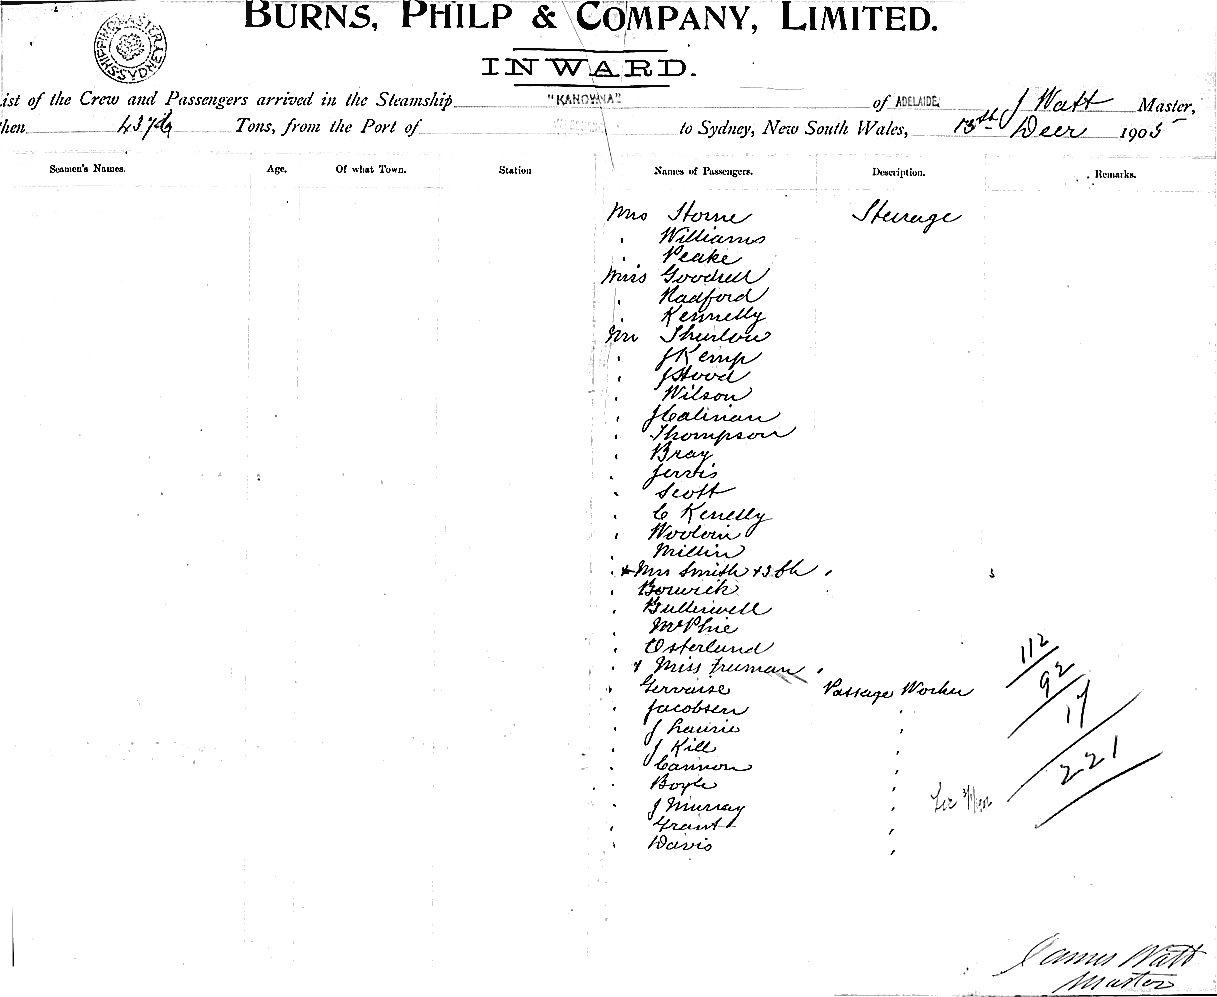 BURNS, PHILP & COMPANY, LIMITED.
INWARD.
SHIPPING MASTER SYDNEY
ist of the Crew and Passengers arrived in the Steamship "KANOWNA" of ADELAIDE, J Watt Master,
hen Tons, from the Port of to Sydney, New South Wales, 13th Decr 1905
Seamen's Names. Age. Of what Town. Station Names of Passengers. Description. Remarks.
Mrs Storne Steerage
" Williams
" Peake
Miss Goodsell
" Radford
" Kennelly
Mr Thurlow
" J Kemp
" J Stood
" Wilson
" J Calinan
" Thompson
" Bray
" Jervis
" Scott
" C Kenelly
" Woodoin
" Millin
" + Mrs Smith + 3 Ch
" Borwick
" Butterwell
" McPhie
" Osterlund
" + Miss Freeman
" Gervaise Passage Worker
" Jacobsen "
" J Laurie "
" J Kill "
" Cannon "
" Boyle "
" J Murray "
" Grant "
" Davis "
112
92
17
221
James Watt
Master